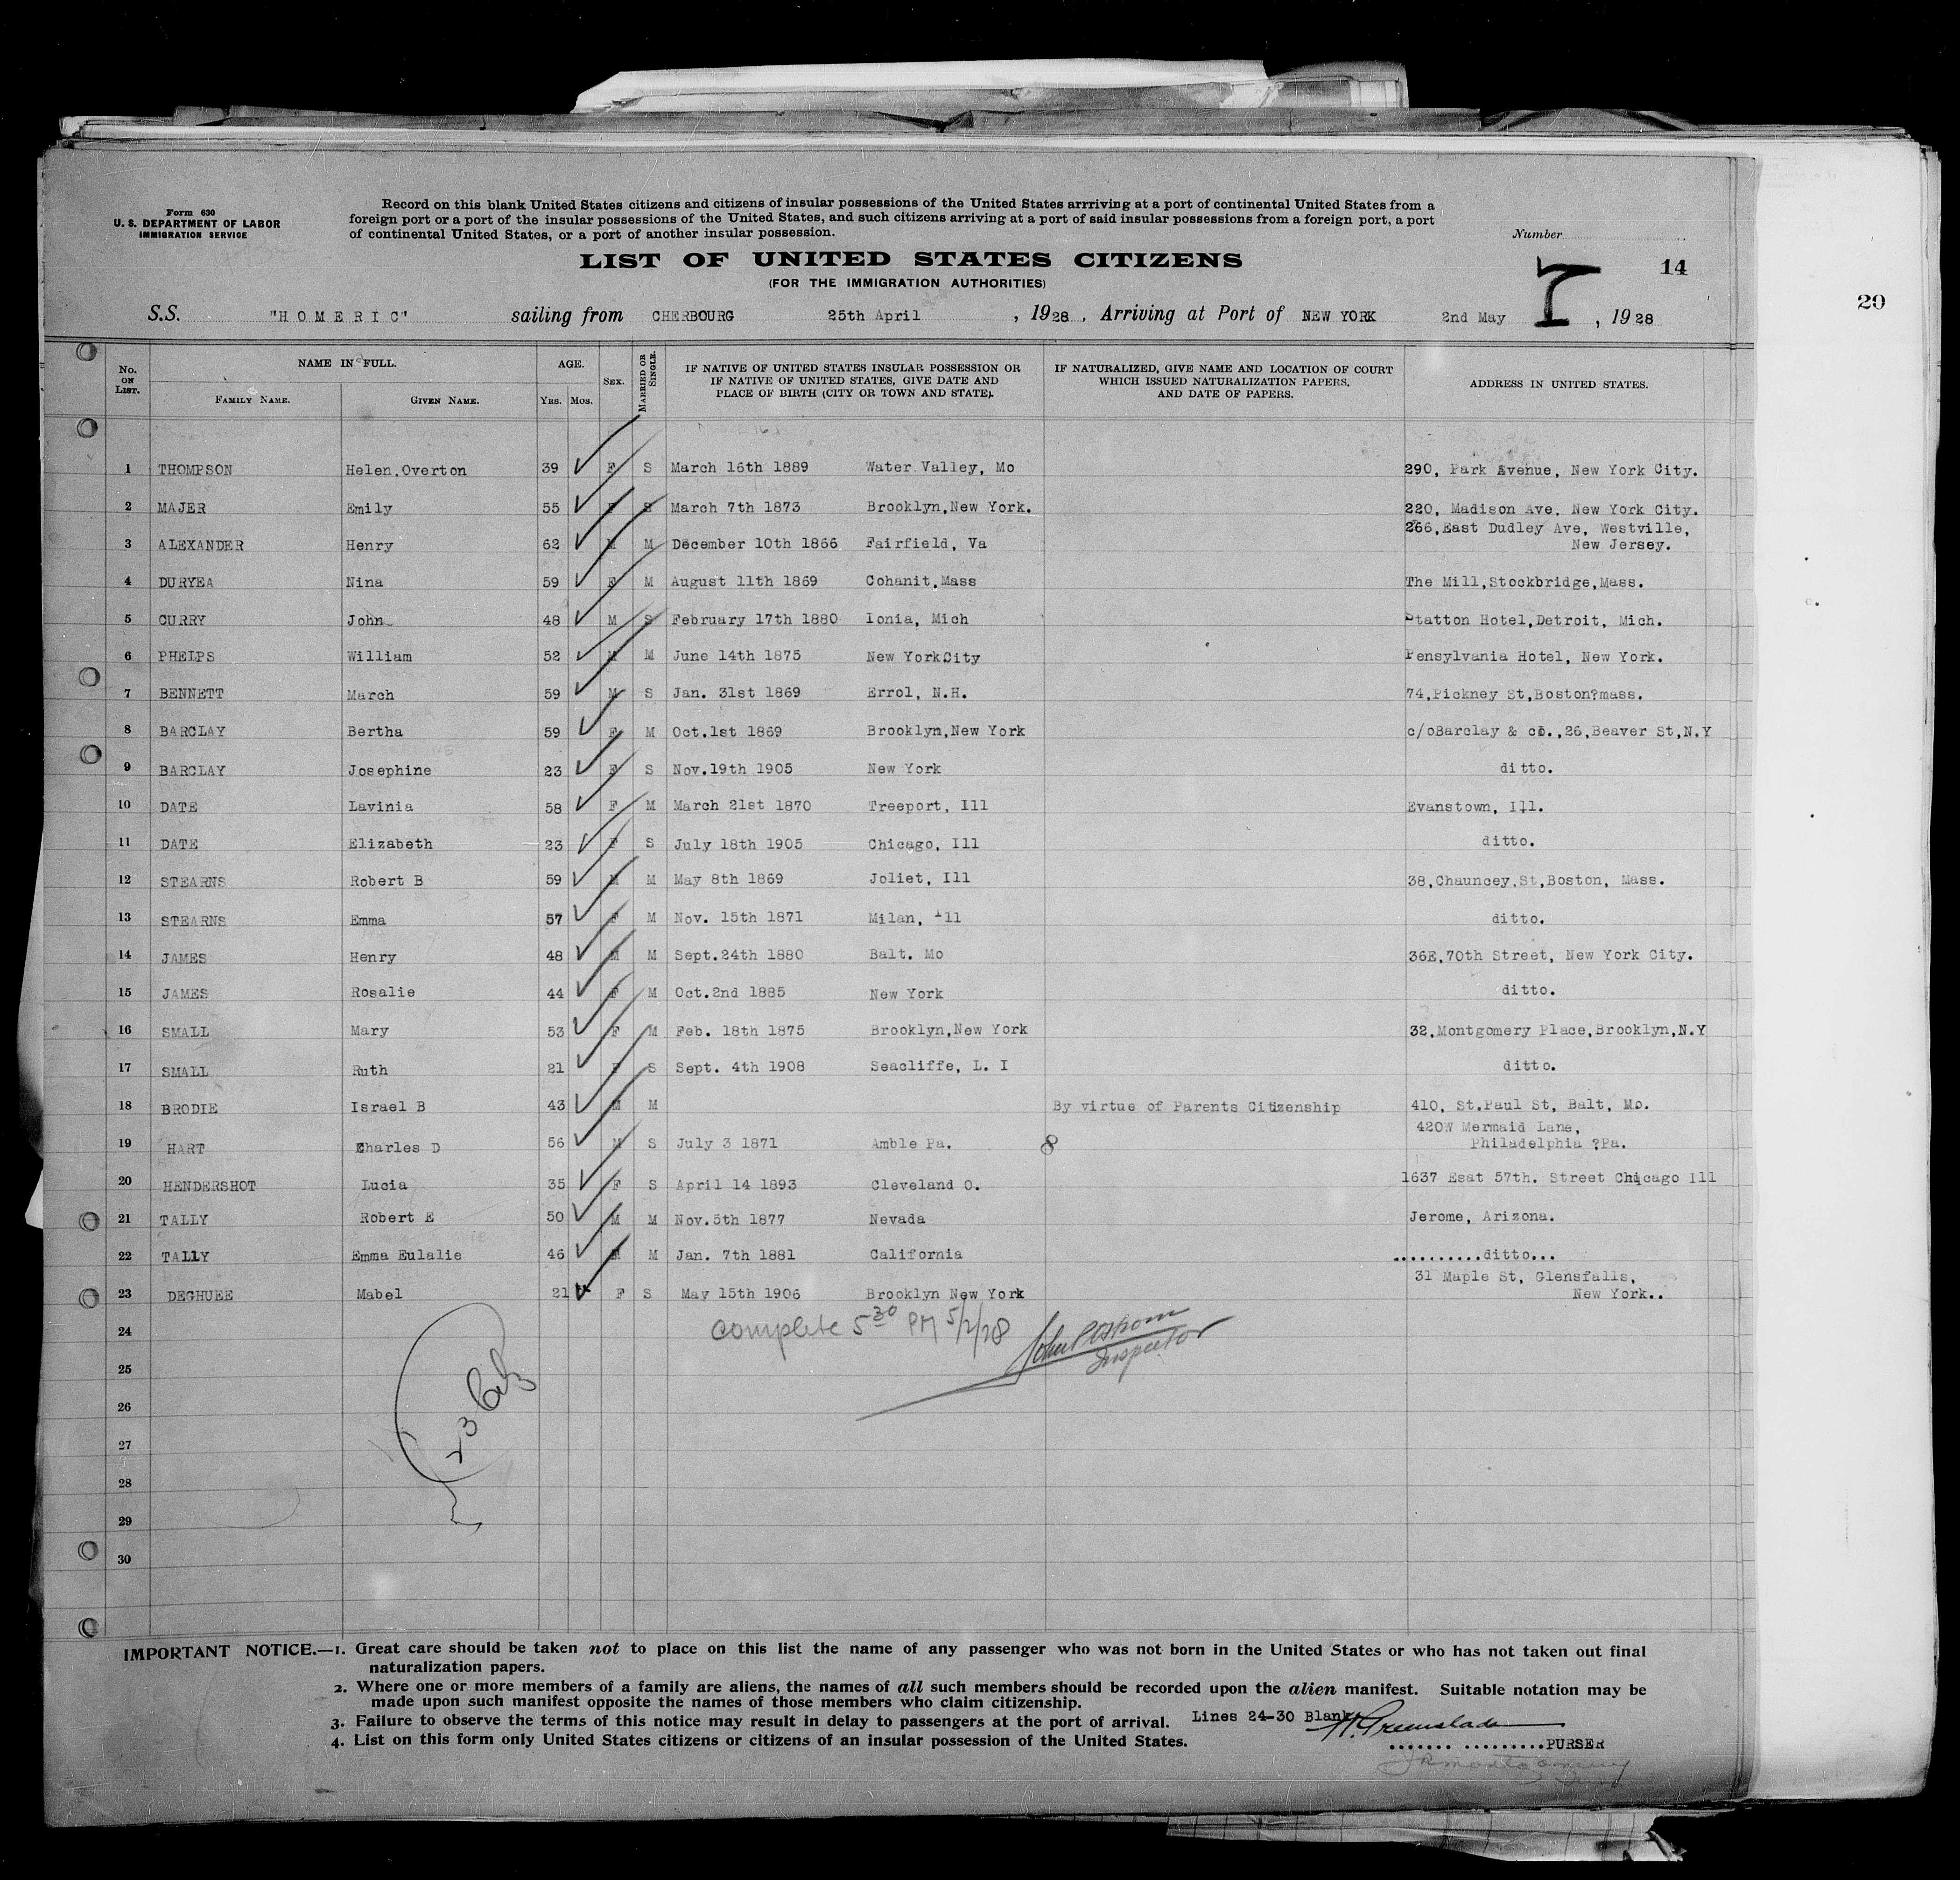 Form 630
U. S. DEPARTMENT OF LABOR
IMMIGRATION SERVICE
Record on this blank United States citizens and citizens of insular possessions of the United States arrriving at a port of continental United States from a
foreign port or a port of the insular possessions of the United States, and such citizens arriving at a port of said insular possessions from a foreign port, a port
of continental United States, or a port of another insular possession.
Number
LIST OF UNITED STATES CITIZENS
(FOR THE IMMIGRATION AUTHORITIES)
14
29
S.S. "HOMERIC" sailing from CHERBOURG 25th April , 1928 , Arriving at Port of NEW YORK 2nd May , 1928
No. ON LIST. NAME IN FULL. FAMILY NAME. GIVEN NAME. AGE. YRS. MOS. SEX. MARRIED OR SINGLE. IF NATIVE OF UNITED STATES INSULAR POSSESSION OR IF NATIVE OF UNITED STATES, GIVE DATE AND PLACE OF BIRTH (CITY OR TOWN AND STATE). IF NATURALIZED, GIVE NAME AND LOCATION OF COURT WHICH ISSUED NATURALIZATION PAPERS, AND DATE OF PAPERS. ADDRESS IN UNITED STATES.
1 THOMPSON Helen.Overton 39 F S March 16th 1889 Water Valley, Mo 290, Park Avenue, New York City.
2 MAJER Emily 55 F S March 7th 1873 Brooklyn,New York. 220, Madison Ave, New York City.
3 ALEXANDER Henry 62 M M December 10th 1866 Fairfield, Va 266,East Dudley Ave, Westville, New Jersey.
4 DURYEA Nina 59 F M August 11th 1869 Cohanit,Mass The Mill,Stockbridge,Mass.
5 CURRY John 48 M S February 17th 1880 Ionia, Mich Statton Hotel,Detroit, Mich.
6 PHELPS William 52 M M June 14th 1875 New YorkCity Pensylvania Hotel, New York.
7 BENNETT March 59 M S Jan. 31st 1869 Errol, N.H. 74,Pickney St,Boston?mass.
8 BARCLAY Bertha 59 F M Oct.1st 1869 Brooklyn,New York c/oBarclay & co.,26,Beaver St,N.Y
9 BARCLAY Josephine 23 F S Nov.19th 1905 New York ditto.
10 DATE Lavinia 58 F M March 21st 1870 Treeport, Ill Evanstown, Ill.
11 DATE Elizabeth 23 F S July 18th 1905 Chicago, Ill ditto.
12 STEARNS Robert B 59 M M May 8th 1869 Joliet, Ill 38,Chauncey,St,Boston, Mass.
13 STEARNS Emma 57 F M Nov. 15th 1871 Milan, Ill ditto.
14 JAMES Henry 48 M M Sept.24th 1880 Balt. Mo 36E,70th Street, New York City.
15 JAMES Rosalie 44 F M Oct.2nd 1885 New York ditto.
16 SMALL Mary 53 F M Feb. 18th 1875 Brooklyn,New York 32,Montgomery Place,Brooklyn,N.Y
17 SMALL Ruth 21 F S Sept. 4th 1908 Seacliffe, L. I ditto.
18 BRODIE Israel B 43 M M By virtue of Parents Citizenship 410, St.Paul St, Balt, Mo.
19 HART Charles D 56 M S July 3 1871 Amble Pa. 8 420W Mermaid Lane, Philadelphia ?Pa.
20 HENDERSHOT Lucia 35 F S April 14 1893 Cleveland O. 1637 Esat 57th. Street Chicago Ill
21 TALLY Robert E 50 M M Nov.5th 1877 Nevada Jerome, Arizona.
22 TALLY Emma Eulalie 46 M M Jan. 7th 1881 California ..........ditto...
23 DEGHUEE Mabel 21 F S May 15th 1906 Brooklyn New York 31 Maple St, Glensfalls, New York..
24
complete 5 30 PM 5/2/28
Inspector
25
26
23
27
28
29
30
IMPORTANT NOTICE.—1. Great care should be taken not to place on this list the name of any passenger who was not born in the United States or who has not taken out final
naturalization papers.
2. Where one or more members of a family are aliens, the names of all such members should be recorded upon the alien manifest. Suitable notation may be
made upon such manifest opposite the names of those members who claim citizenship.
3. Failure to observe the terms of this notice may result in delay to passengers at the port of arrival.
Lines 24-30 Blank.
4. List on this form only United States citizens or citizens of an insular possession of the United States.
....... .........PURSER